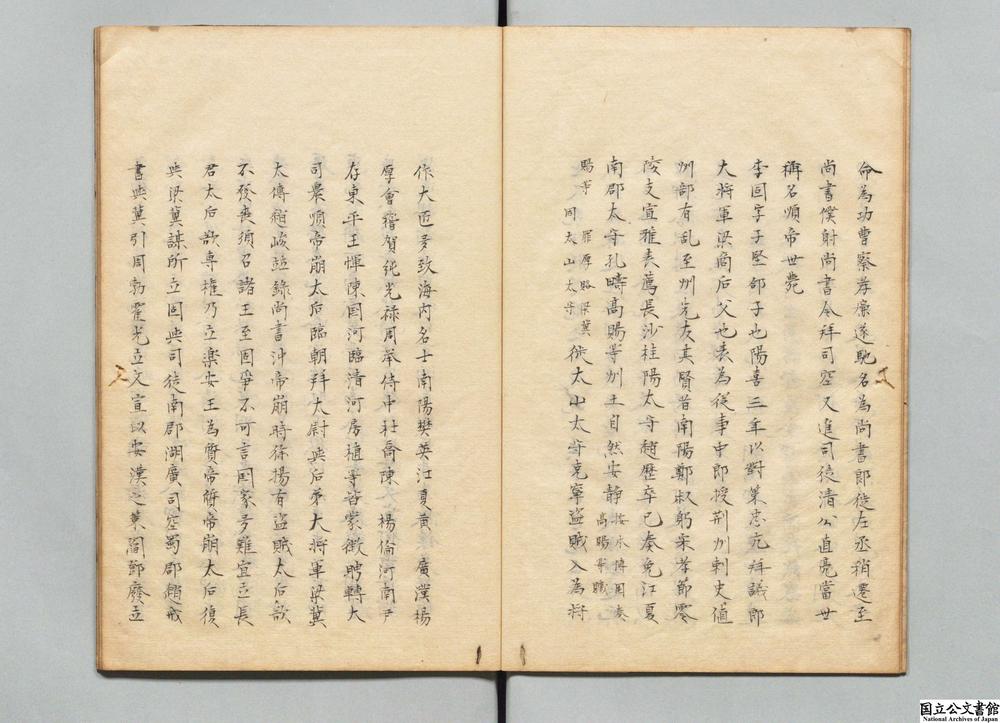 命為功曹察孝廉遂馳名為尚書郎從左丞稍遷至
尚書僕射尚書令拜司空又進司徒清公直亮當世
稱名順帝世薨
李固字子堅郃子也陽嘉三年以對策忠亢拜議郎
大將軍梁商后父也表為從事中郎授荊州刺史值
州部有乱至州先友其賢者南陽鄭叔躬宋孝節零
陵支宣雅表薦長沙桂陽太守趙歷卒已奏免江夏
南郡太守孔疇高賜等州土自然安静
按本傳固奏
高賜等臧
賜等
罪厚賂梁冀
固太山太守
徙太山太守克寧盜賊入為将
作大匠多致海内名士南陽樊英江夏黄廣漢楊
厚會稽賀純光禄周舉侍中杜喬陳楊倫河南尹
存東平王惲陳国河臨清河房植等皆蒙徴聘轉大
司農順帝崩太后臨朝拜太尉與后弟大将軍梁冀
太傅趙峻並錄尚書沖帝崩時徐揚有盜賊太后欲
不發喪須召諸王至固爭不可言国家多難宜立長
君太后欲專權乃立樂安王為質帝質帝崩太后復
與梁冀謀所立固與司徒南郡湖廣司空蜀郡趙戒
書與冀引周勃霍光立文宣以安漢之策閻鄧廢立
国立公文書館
National Archives of Japan